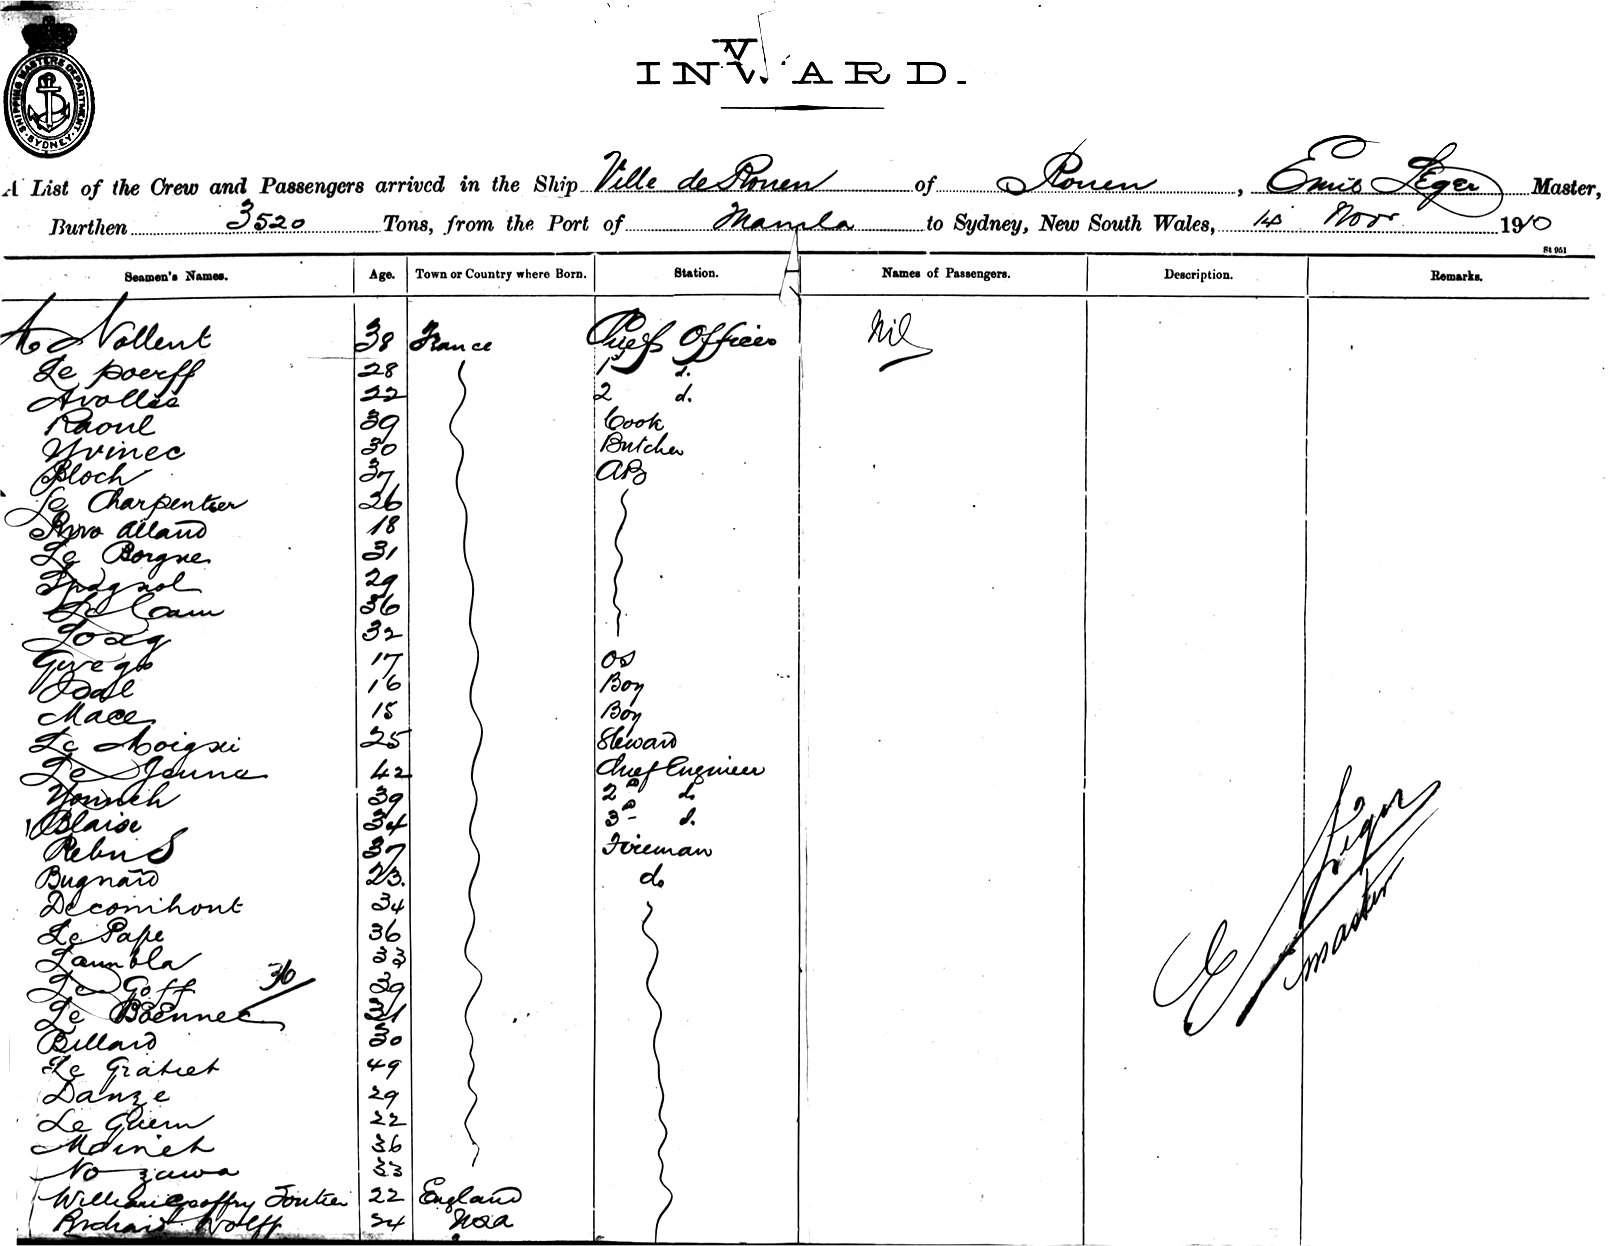 SHIPPING MASTERS DEPARTMENT SYDNEY
INWARD.
A List of the Crew and Passengers arrived in the Ship Ville de Rouen of Rouen, Emile Léger Master,
Burthen 3520 Tons, from the Port of Manila to Sydney, New South Wales, 14 Novr 1910
St 951
Seamen's Names. Age. Town or Country where Born. Station. Names of Passengers. Description. Remarks.
Nollent 38 France Chief Officer Nil
Le poerff 28 1 d.
Avollis 22 2 d.
Raoul 39 Cook
Yvinec 30 Butcher
Bloch 37 AB
Le Charpentier 26
Allano 18
Le Borgne 31
Spagnol 29
Le Cam 36
32
17 OS
16 Boy
Mace 15 Boy
Le Moigne 25 Steward
Le Jeune 42 Chief Engineer
39 2nd do
Blaise 34 3rd d.
37 Fireman
Bugnard 23. do
Decomihont 34
Le Pape 36
33
Le Goff 36 39
Le Boennec 31
Billard 30
Le Gratiet 49
Danze 29
Le Guern 22
36
Nozawa 33
William 22 England
Richard Wolff 24
E Léger
master